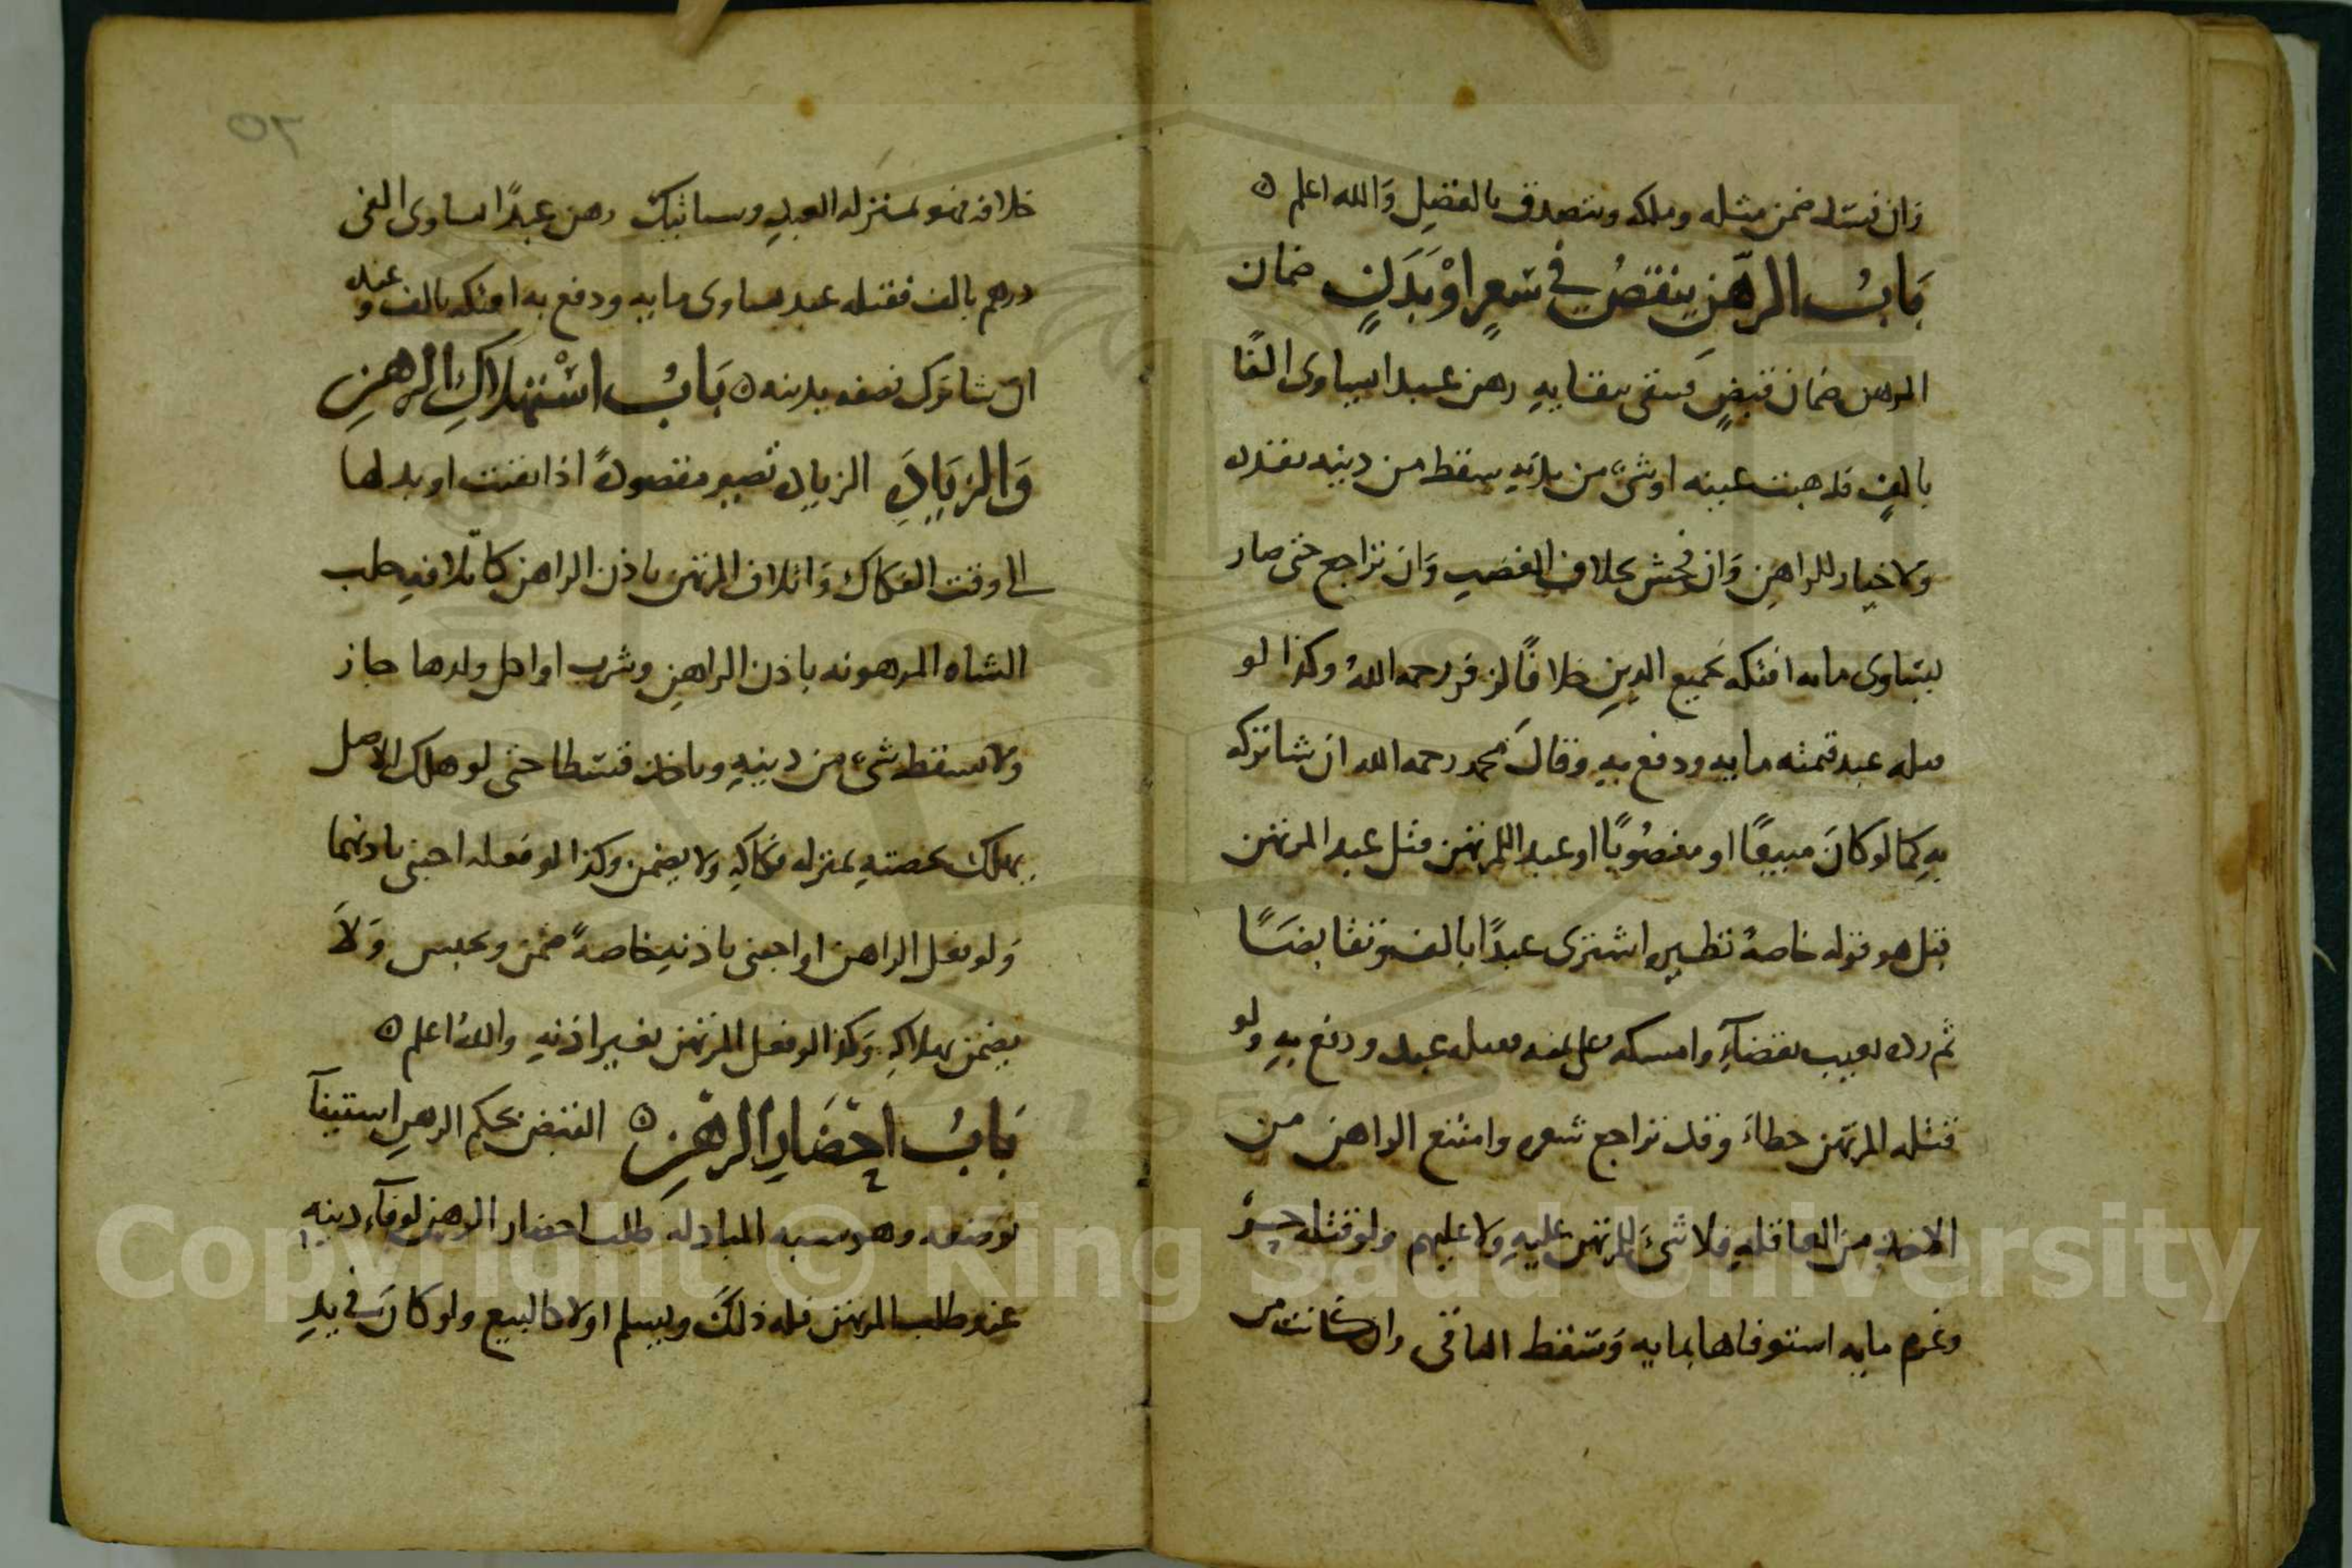 وان فسد ضمن مثله وملكه ويتصدق بالفضل والله اعلم ٥
بَابُ الرهن ينقصُ في سعرٍ اوْ بَدَنٍ ضمان
المرهن ضمان قبضٍ فيبقى ببقايهِ رهن عبدا يساوى الفًا
بالفٍ فذهبت عينه او شىٌ من بدنهِ سقط من دينه بقدره
وَلا خيار للراهِنِ وَان فحش بخلاف الغصبِ وَان تراجع حتى صار
يساوى مايه افتكه بجميع الدينِ خلافًا لزفر رحمه اللهُ وكذا لو
قتله عبد قيمته مايه ودفع بهِ وقالَ محمد رحمه الله ان شا تركه
بهِ كما لو كانَ مبيعًا او مغصُوبًا او عبد المرتهن قتل عبد المرتهن
قيل هو قوله خاصةً نظيره اشترى عبدًا بالف وتقابضَا
ثم رده بعيب بقضآءٍ وامسكه على ثمنه فقتله عبد ودفع بهِ ولو
قتله المرتهن خطاءً وقد تراجع سعره وامتنع الراهن من
الاخذ من العاقلهِ فلا شىَ للمرتهن عليهِ وَلا عليهم ولو قتله حرٌ
وغرم مايه استوفاها بمايه وَسقط الباقى وان كانت من
٥٢
خلافه فهو بمنزله العبدِ وسياتيك رهن عبدًا يساوى الفى
درهم بالف فقتله عبد يساوى مايه ودفع به افتكه بالف وعنده
ان شا ترك نصفه بدينه ٥ بَابُ اسْتهلاكِ الرهنِ
وَالزيَادَهِ الزياده تصير مقصودهً اذا بقيت او بدلها
الى وقت الفكاك وَاتلاف المرتهن باذن الراهن كاتلافهِ حلب
الشاه المرهونه باذن الراهنِ وشرب او اكل ولدها جاز
ولا يسقط شىٌ من دينهِ وياخذ قسطا حتى لو هلك الاصل
يهلك بحصتهِ بمنزله فكاكهِ وَلا يضمن وكذا لو فعله اجنبى باذنهما
وَلو فعل الراهن او اجنبى باذنهِ خاصهً ضمن ويحبس وَلَا
يضمن بهلاكهِ وَكذا لو فعل المرتهن بغير اذنهِ واللهُ اعلم ٥
بَابُ احْضَارِ الرهْنِ ٥ القبض بحكم الرهنِ استيفآ
توضعه وهو يشبه المبادله طلب احضار الرهن لوفآءِ دينهِ
عزو طلب المرتهن فله ذلكَ ويسلم اولا كالبيع ولو كانَ فى يدِ